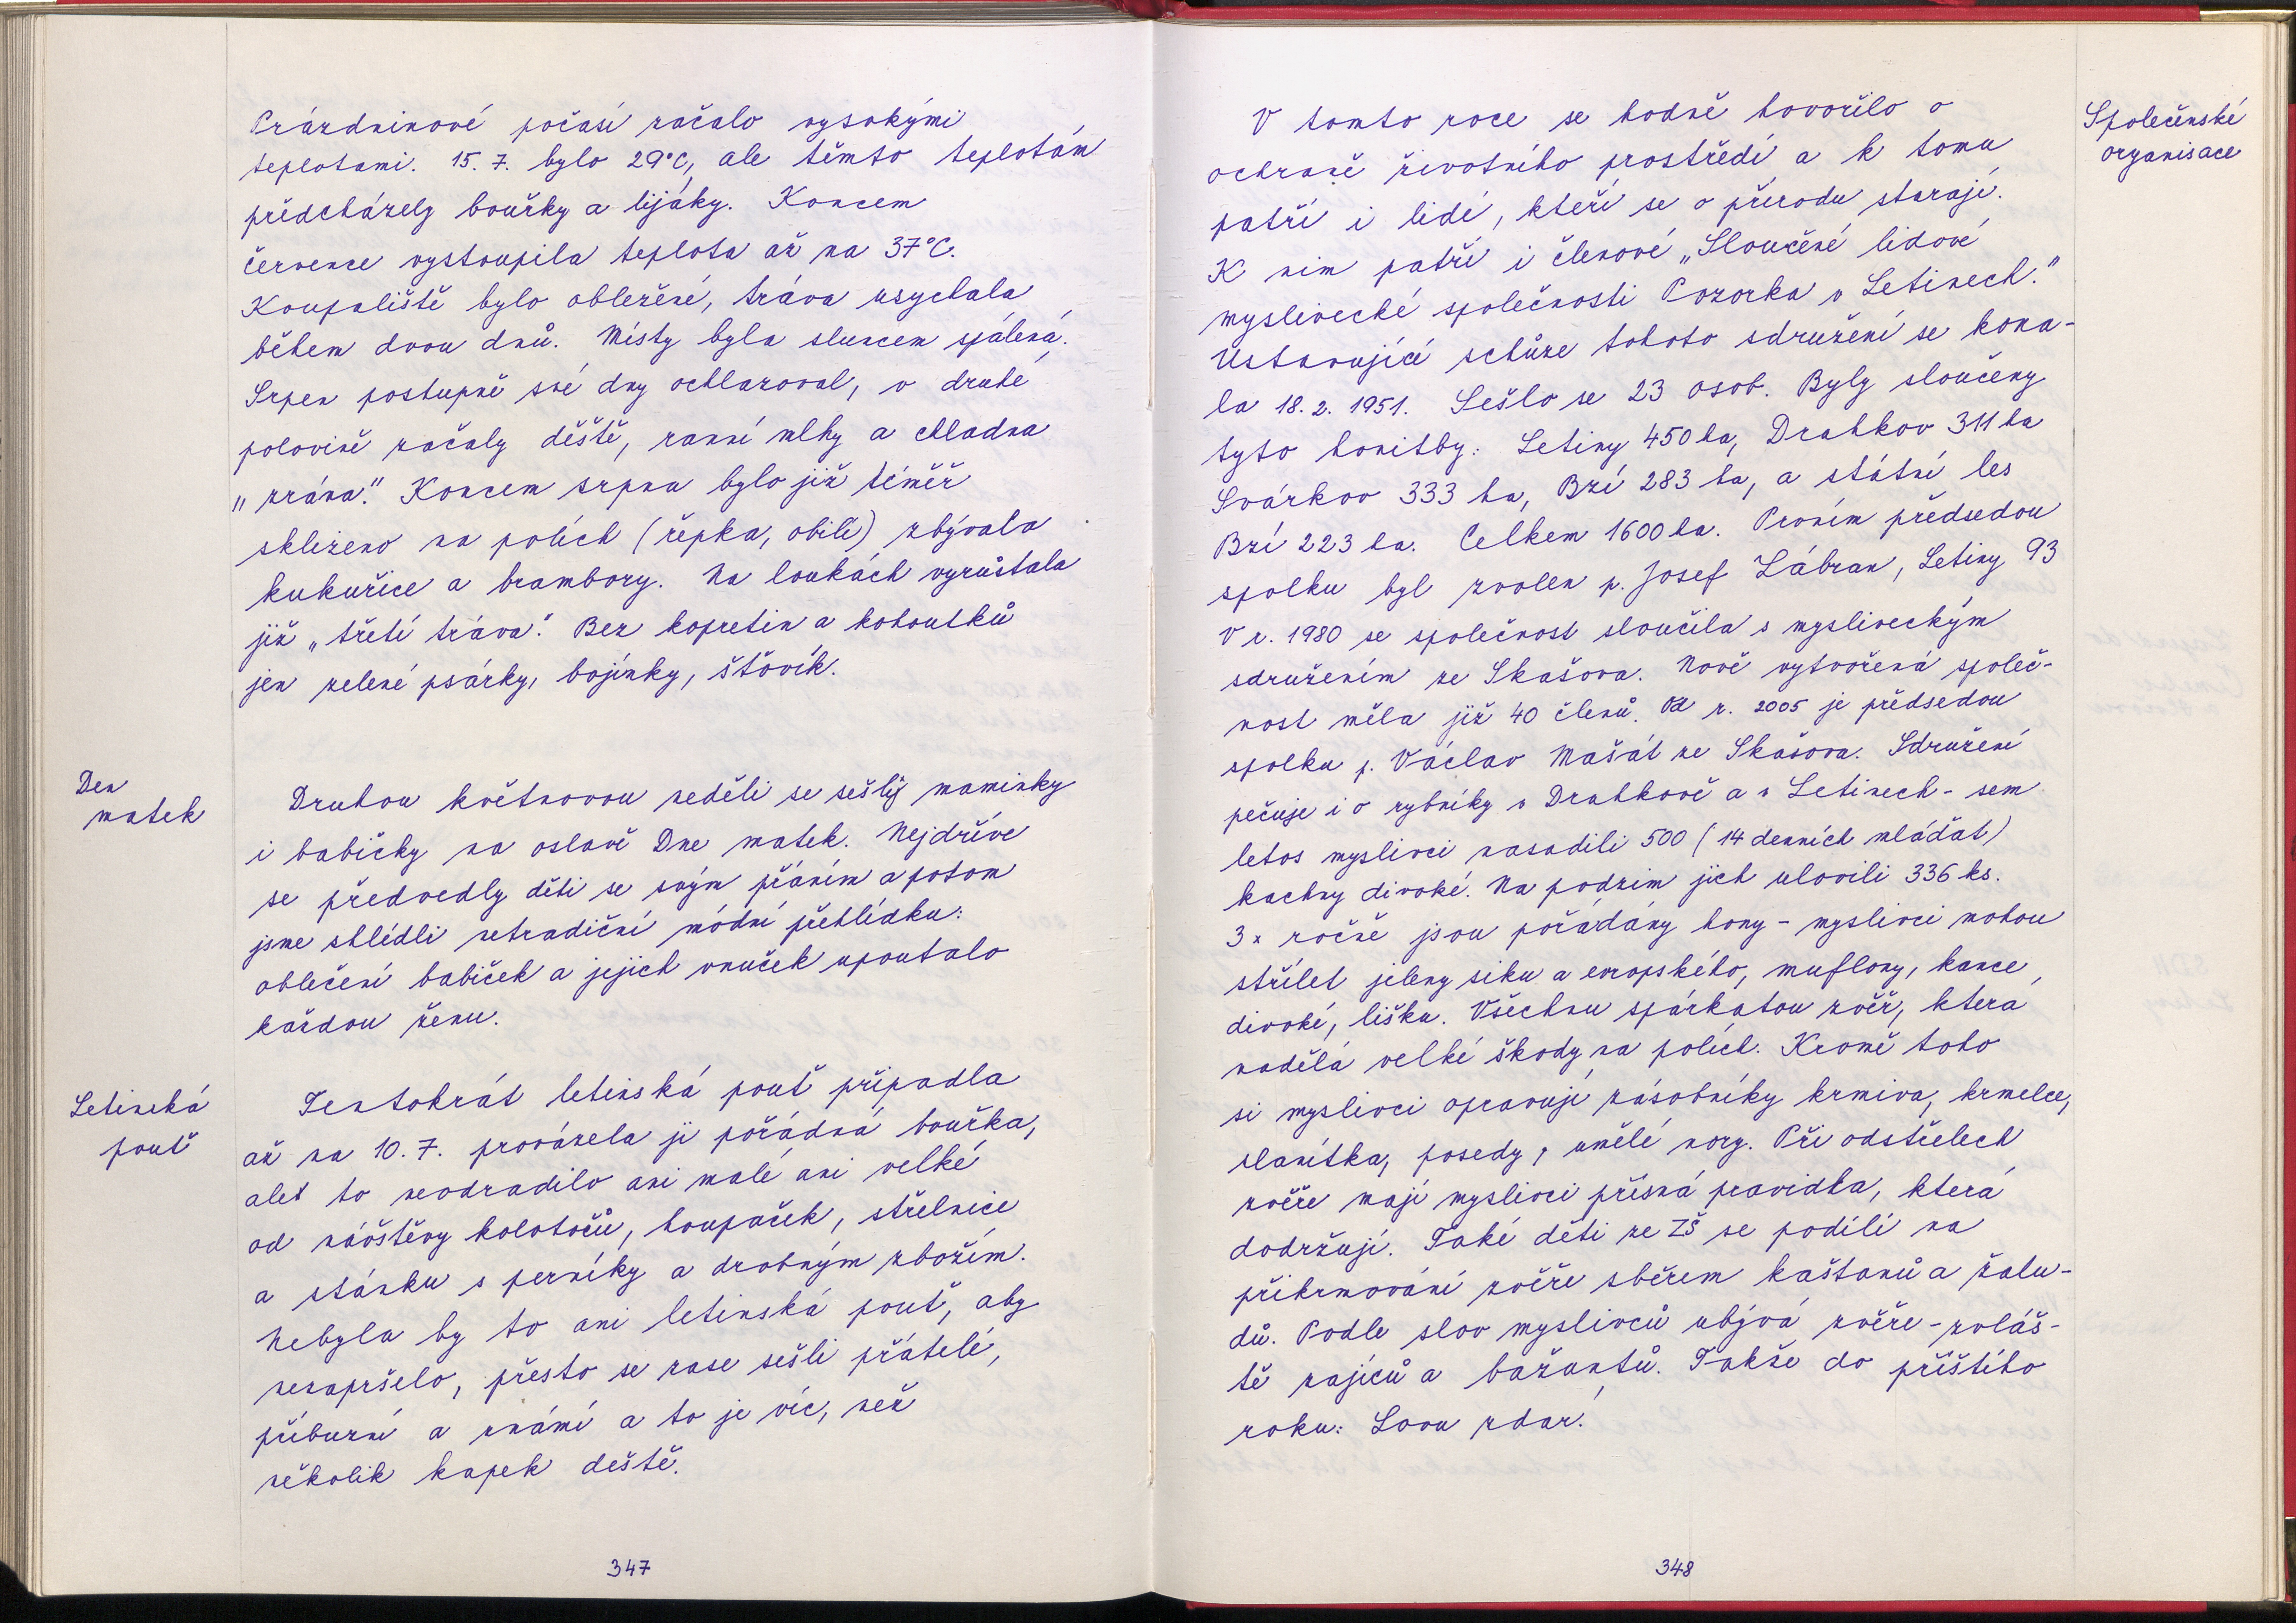 Prázdninové počasí začalo vysokými
teplotami. 15. 7. bylo 29°C, ale těmto teplotám
předcházely bouřky a lijáky. Koncem
července vystoupila teplota až na 37°C.
Koupaliště bylo obležené, tráva usychala
během dvou dnů. Místy byla sluncem spálená.
Srpen postupně své dny ochlazoval, v druhé
polovině začaly deště, ranní mlhy a chladna
"zrána". Koncem srpna bylo již téměř
sklizeno na polích (řepka, obilí) zbývala
kukuřice a brambory. Na loukách vyrůstala
již „třetí tráva". Bez kopretin a kohoutků
jen zelené psárky, bojínky, šťovík.
Den
matek
Druhou květnovou neděli se sešly maminky
i babičky na oslavě Dne matek. Nejdříve
se předvedly děti se svým přáním a potom
jsme shlédli netradiční módní přehlídku:
oblečení babiček a jejich vnuček upoutalo
každou ženu.
Letinská
pouť
Tentokrát letinská pouť připadla
až na 10. 7. provázela ji pořádná bouřka,
ale to neodradilo ani malé ani velké
od návštěvy kolotočů, houpaček, střelnice
a stánku s perníky a drobným zbožím.
Nebyla by to ani letinská pouť, aby
nezapršelo, přesto se zase sešli přátelé,
příbuzní a známí a to je víc, než
několik kapek deště.
347
Společenské
organisace
V tomto roce se hodně hovořilo o
ochraně životního prostředí a k tomu
patří i lidé, kteří se o přírodu starají.
K nim patří i členové „Sloučené lidové
myslivecké společnosti Pozorka v Letinech."
Ustavující schůze tohoto sdružení se kona-
la 18. 2. 1951. Sešlo se 23 osob. Byly sloučeny
tyto honitby: Letiny 450 ha, Drahkov 311 ha
Svárkov 333 ha, Bzí 283 ha, a státní les
Bzí 223 ha. Celkem 1600 ha. Prvním předsedou
spolku byl zvolen p. Josef Zábran, Letiny 93
V r. 1980 se společnost sloučila s mysliveckým
sdružením ze Skašova. Nově vytvořená společ-
nost měla již 40 členů. Od r. 2005 je předsedou
spolku p. Václav Mašát ze Skašova. Sdružení
pečuje i o rybníky v Drahkově a v Letinech - sem
letos myslivci nasadili 500 (14 denních mláďat)
kachny divoké. Na podzim jich ulovili 336 ks.
3x ročně jsou pořádány hony - myslivci mohou
střílet jeleny siku a evropského, muflony, kance
divoké, lišku. Všechnu spárkatou zvěř, která
nadělá velké škody na polích. Kromě toho
si myslivci opravují zásobníky krmiva, krmelce,
slanítka, posedy, umělé nory. Při odstřelech
zvěře mají myslivci přísná pravidla, která
dodržují. Také děti ze ZŠ se podílí na
přikrmování zvěře sběrem kaštanů a žalu-
dů. Podle slov myslivců ubývá zvěře - zvláš-
tě zajíců a bažantů. Takže do příštího
roku: Lovu zdar!
348